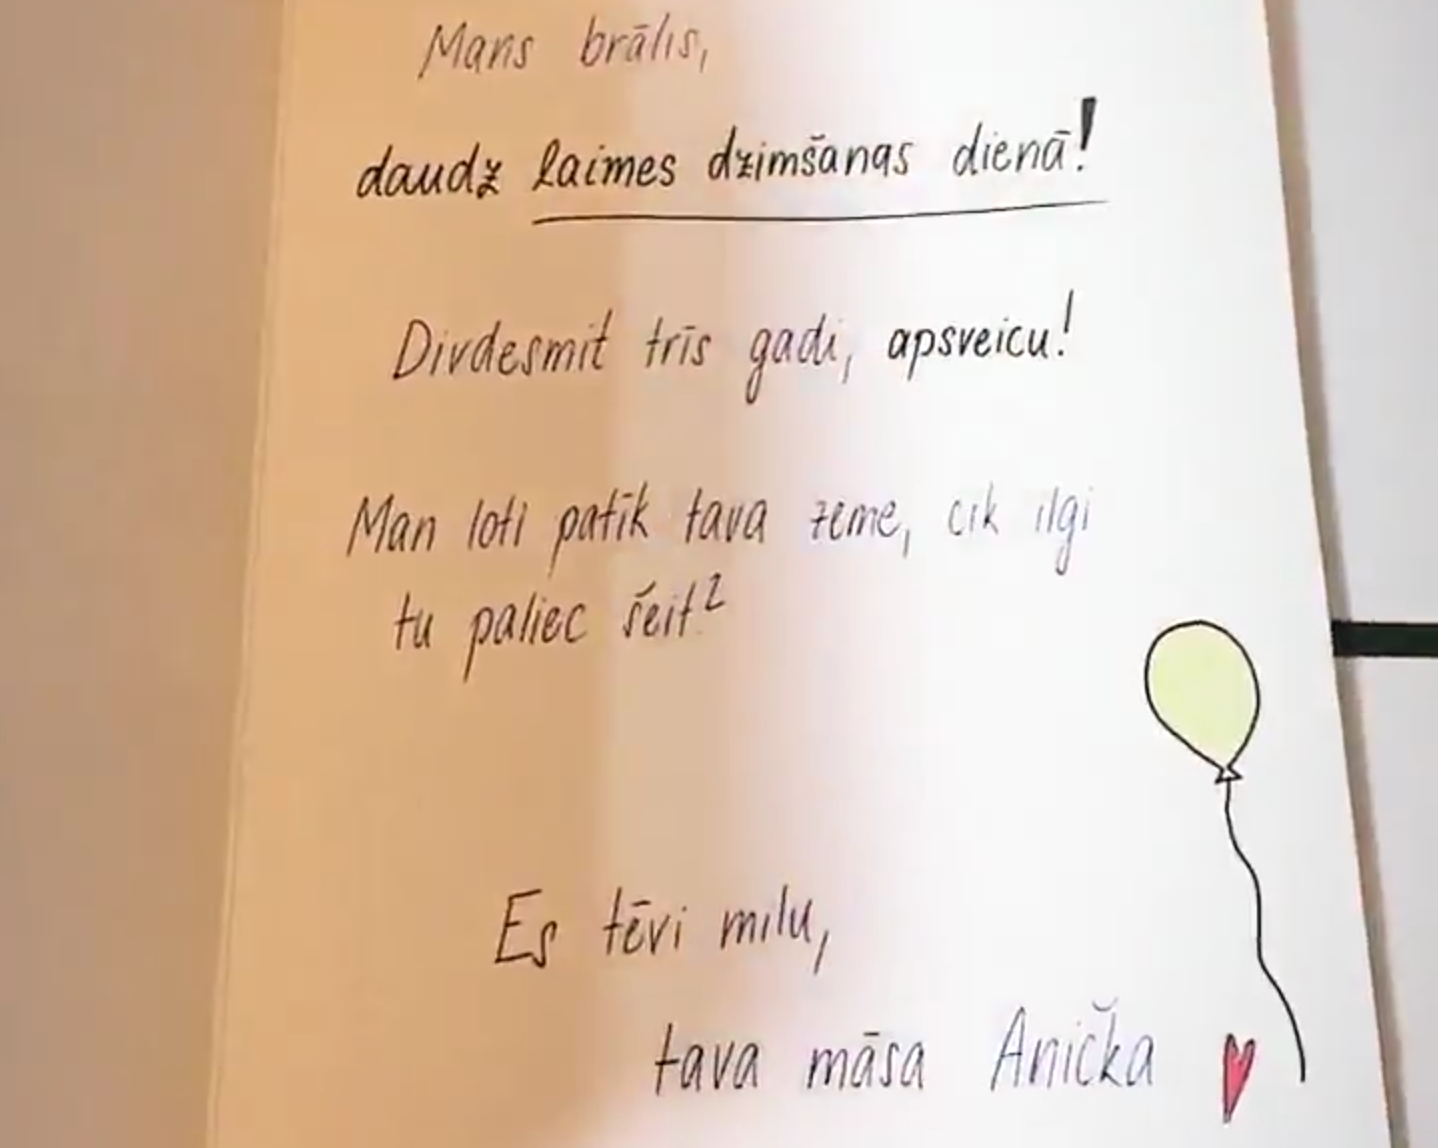 Mans brālis,
daudz laimes dzimšanas dienā!
Divdesmit trīs gadi, apsveicu!
Man loti patīk tava zeme, cik ilgi
tu paliec šeit?
Es tēvi milu,
tava māsa Anička